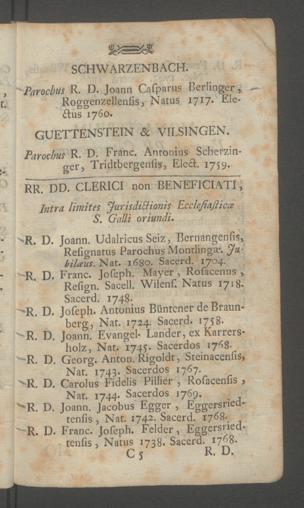 SCHWARZENBACH.
Parochus R. D. Joann Casparus Berlinger,
Roggenzellensis, Natus 1717. Ele-
ctus 1760.
GUETTENSTEIN & VILSINGEN.
Parochus R. D. Franc. Antonius Scherzin-
ger, Tridtbergensis, Elect. 1759.
RR. DD. CLERICI non BENEFICIATI,
Intra limites Jurisdictionis Ecclesiasticæ
S. Galli oriundi.
R. D. Joann. Udalricus Seiz, Bernangensis,
Resignatus Parochus Montlingæ. Ju-
bilæus. Nat. 1680. Sacerd. 1704.
R. D. Franc. Joseph. Mayer, Rosacenus,
Resign. Sacell. Wilens. Natus 1718.
Sacerd. 1748.
R. D. Joseph. Antonius Büntener de Braun-
berg, Nat. 1724. Sacerd. 1758.
R. D. Joann. Evangel. Lander, ex Karrers-
holz, Nat. 1745. Sacerdos 1768.
R. D. Georg. Anton. Rigoldt, Steinacensis,
Nat. 1743. Sacerdos 1767.
R. D. Carolus Fidelis Pillier, Rosacensis,
Nat. 1744. Sacerdos 1769.
R. D. Joann. Jacobus Egger, Eggersried-
tensis, Nat. 1742. Sacerd. 1768.
R. D. Franc. Joseph. Felder, Eggersried-
tensis, Natus 1738. Sacerd. 1768.
C 5 R. D.